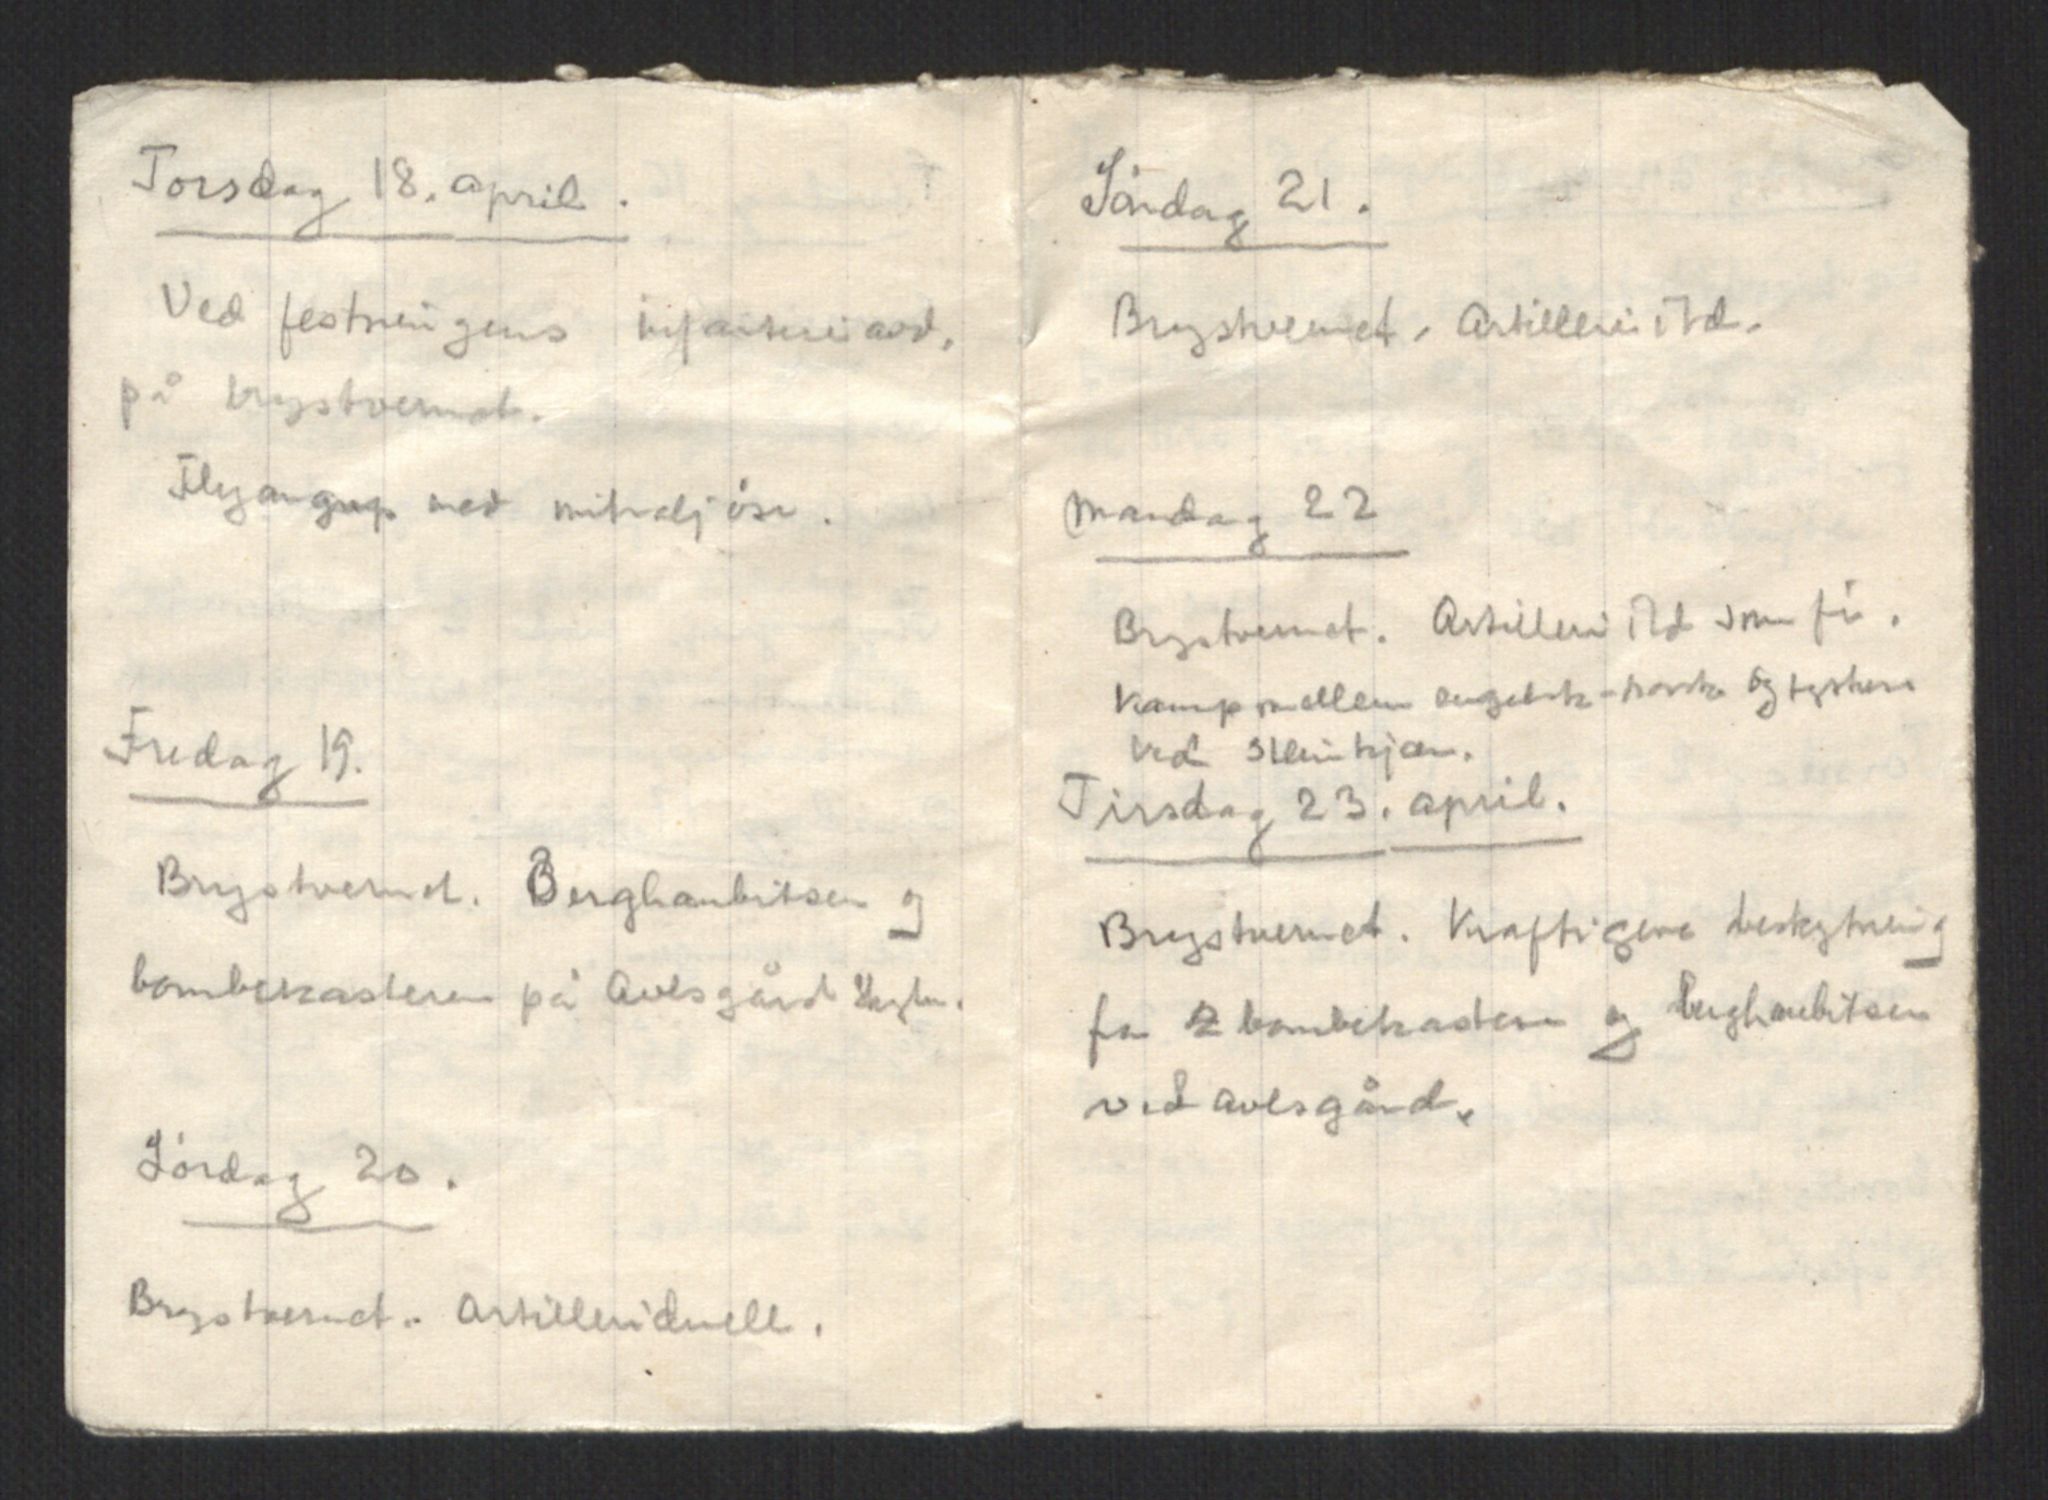 Torsdag 18. april.
Ved festningens infanteriavd.
på brystvernet.
Flyangrep med mitraljöse.
Fredag 19.
Brystvernet. Berghaubitsen og
bombekasteren på Avlsgård
Lördag 20.
Brystvernet. Artilleriduell.
Söndag 21.
Brystvernet. Artilleriild.
Mandag 22
Brystvernet. Artilleriild som för.
Kamp mellem engelsk-norske og tyskere
ved Steinkjær.
Tirsdag 23. april.
Brystvernet. Kraftigere beskytning
fra 2 bombekastere og berghaubitsen
ved avlsgård.